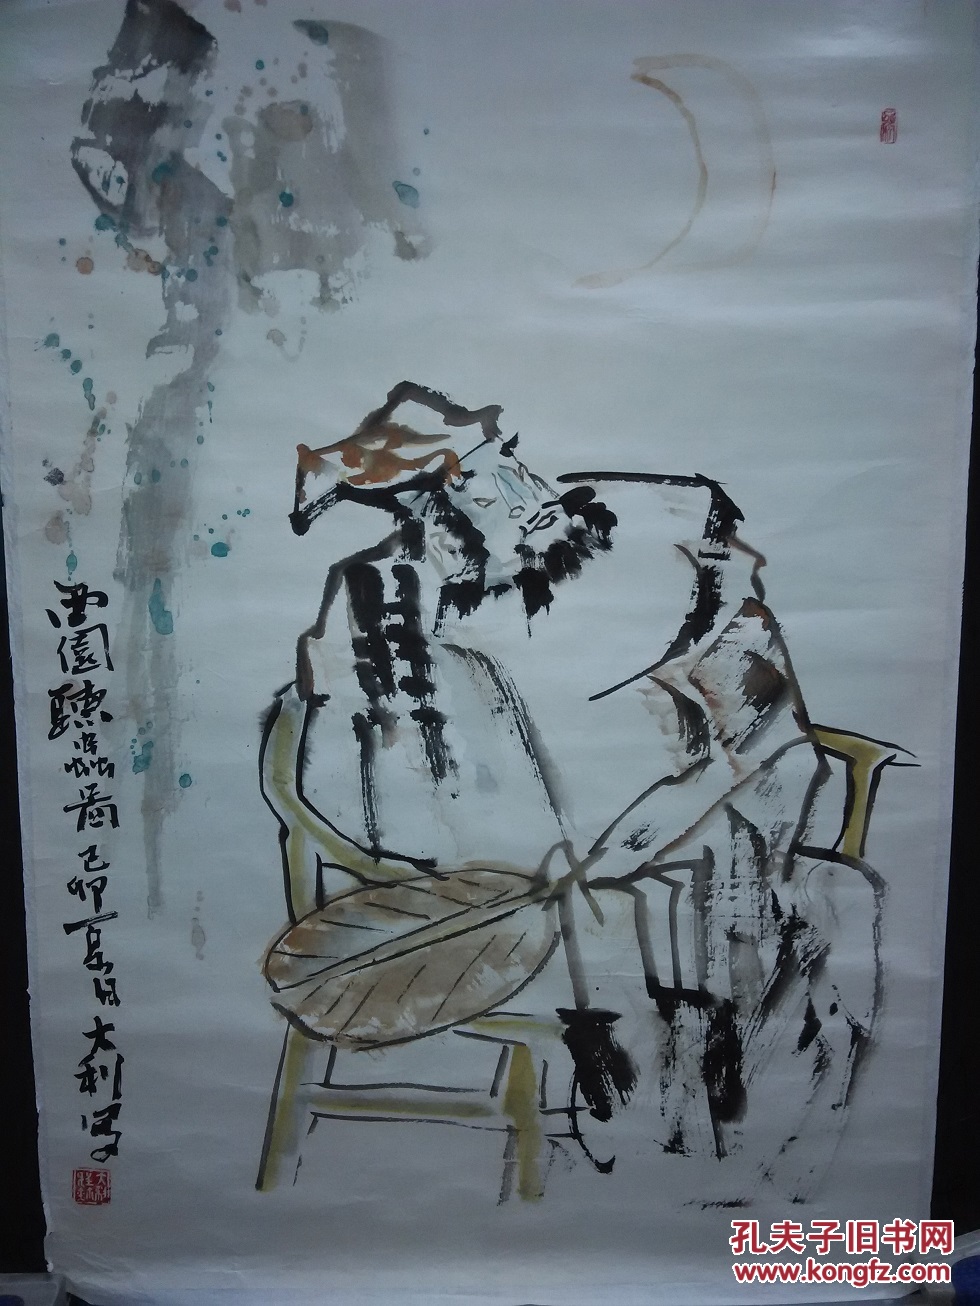 西園聽蟲图己卯夏日大利写
孔夫子旧书网
www.kongfz.com